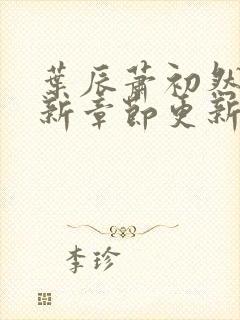 葉辰蕭初然
新章節更新
李珍